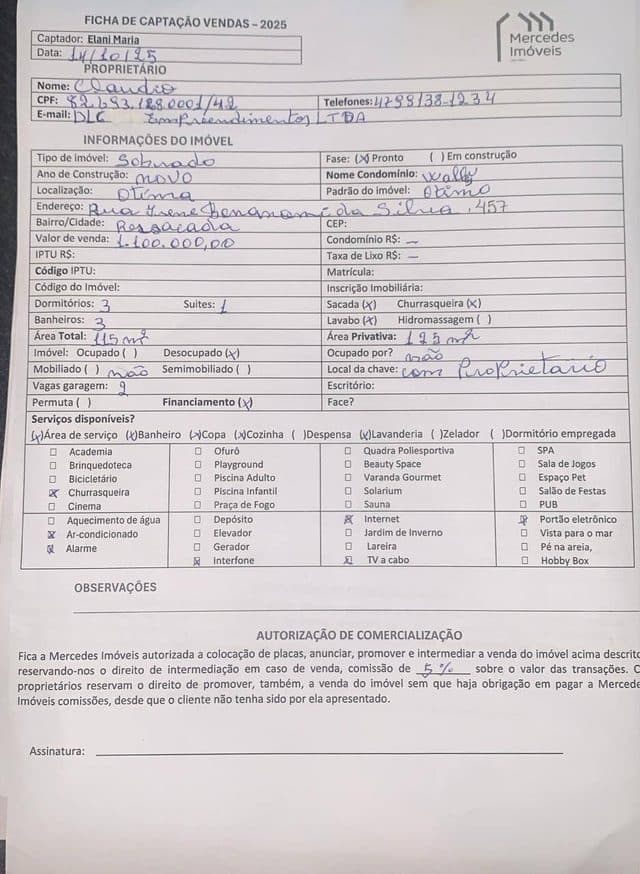 FICHA DE CAPTAÇÃO VENDAS – 2025
Mercedes
Imóveis
Captador: Elani Maria
Data: 14/10/25
PROPRIETÁRIO
Nome: Claudio
CPF: 82.693.128.0001/42 Telefones: 4799138-1234
E-mail: DLC Empreendimentos LTDA
INFORMAÇÕES DO IMÓVEL
Tipo de Imóvel: Sobrado Fase: (x) Pronto ( ) Em construção
Ano de Construção: novo Nome Condomínio: Wally
Localização: Otima Padrão do imóvel: Otimo
Endereço: Rua Irene Bonanomi da Silva, 457
Bairro/Cidade: Ressacada CEP:
Valor de venda: 1.100.000,00 Condomínio R$: —
IPTU R$: Taxa de Lixo R$: —
Código IPTU: Matrícula:
Código do Imóvel: Inscrição Imobiliária:
Dormitórios: 3 Suites: 1 Sacada (x) Churrasqueira (x)
Banheiros: 3 Lavabo (x) Hidromassagem ( )
Área Total: 115 m² Área Privativa: 125 m²
Imóvel: Ocupado ( ) Desocupado (x) Ocupado por? não
Mobiliado ( ) não Semimobiliado ( ) Local da chave: com Proprietario
Vagas garagem: 2 Escritório:
Permuta ( ) Financiamento (x) Face?
Serviços disponíveis?
(x)Área de serviço (x)Banheiro (x)Copa (x)Cozinha ( )Despensa (x)Lavanderia ( )Zelador ( )Dormitório empregada
☐ Academia ☐ Ofurô ☐ Quadra Poliesportiva ☐ SPA
☐ Brinquedoteca ☐ Playground ☐ Beauty Space ☐ Sala de Jogos
☐ Bicicletário ☐ Piscina Adulto ☐ Varanda Gourmet ☐ Espaço Pet
☒ Churrasqueira ☐ Piscina Infantil ☐ Solarium ☐ Salão de Festas
☐ Cinema ☐ Praça de Fogo ☐ Sauna ☐ PUB
☐ Aquecimento de água ☐ Depósito ☒ Internet ☒ Portão eletrônico
☒ Ar-condicionado ☐ Elevador ☐ Jardim de Inverno ☐ Vista para o mar
☒ Alarme ☐ Gerador ☐ Lareira ☐ Pé na areia,
☒ Interfone ☒ TV a cabo ☐ Hobby Box
OBSERVAÇÕES
AUTORIZAÇÃO DE COMERCIALIZAÇÃO
Fica a Mercedes Imóveis autorizada a colocação de placas, anunciar, promover e intermediar a venda do imóvel acima descrito
reservando-nos o direito de intermediação em caso de venda, comissão de 5% sobre o valor das transações. O
proprietários reservam o direito de promover, também, a venda do imóvel sem que haja obrigação em pagar a Mercede
Imóveis comissões, desde que o cliente não tenha sido por ela apresentado.
Assinatura: